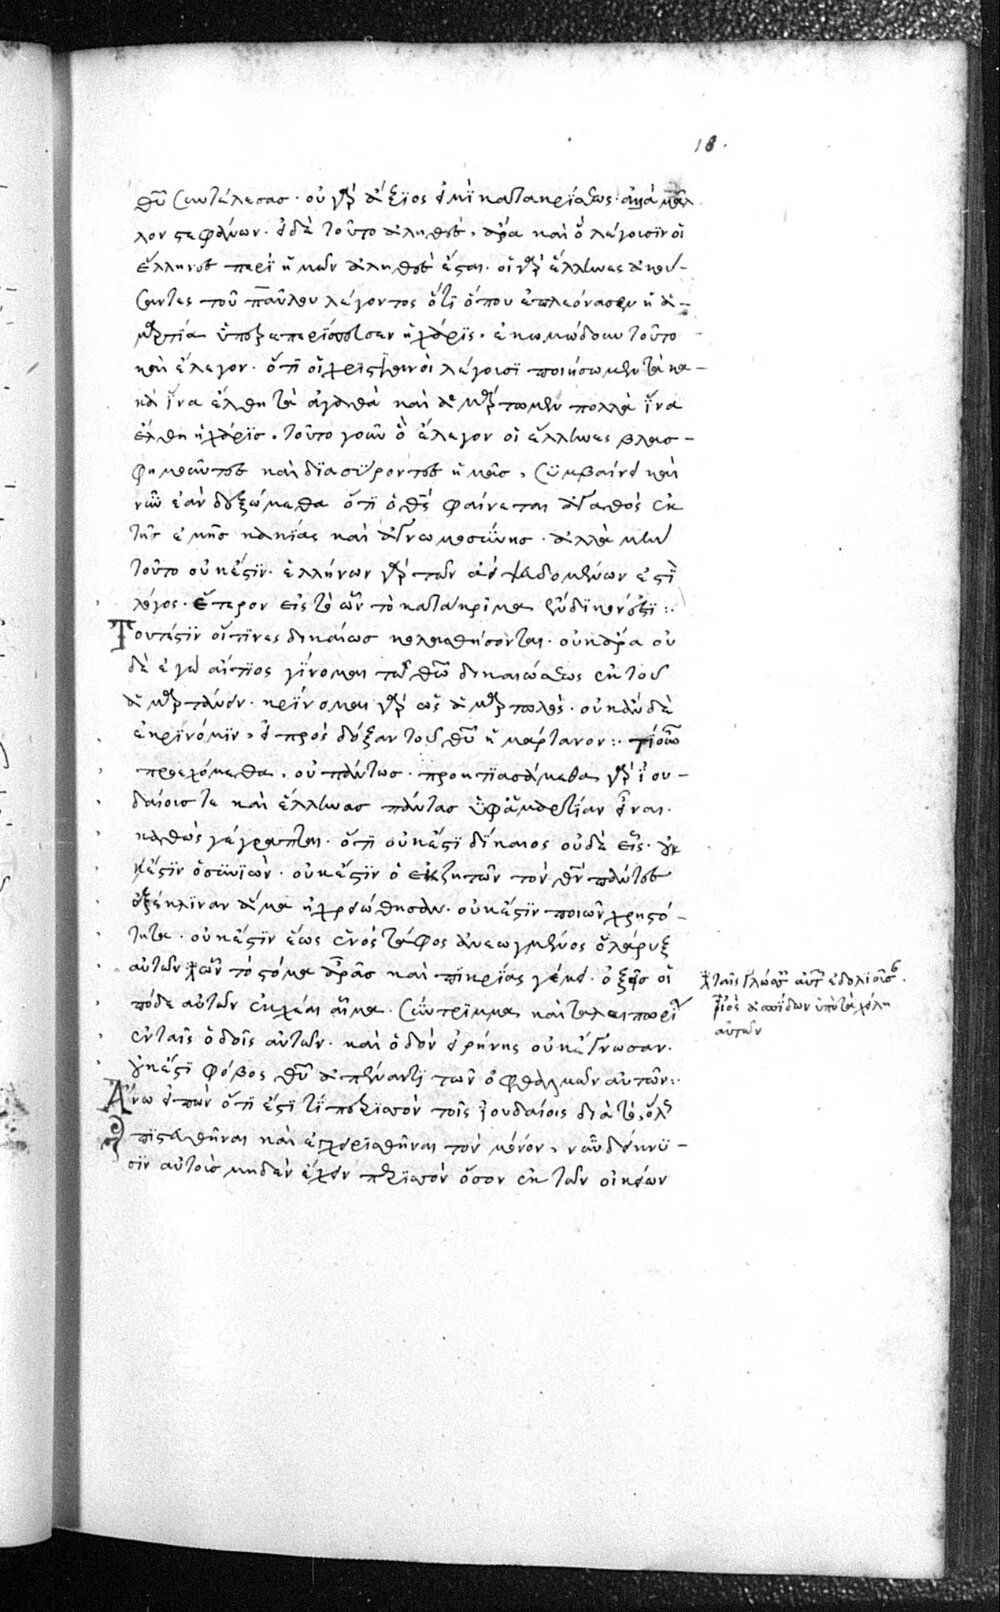 18.
θῦ συνετέλεσας· οὐ γὰρ ἄξιος εἰμὶ κατακρίσεως· ἀλλὰ μᾶλ
λον στεφάνων· εἰ δὲ τοῦτο ἀληθὲς, ἄρα καὶ ὃ λέγουσιν οἱ
ἕλληνες περὶ ἡμῶν ἀληθὲς ἔσται· οἱ γὰρ ἕλληνες ἀκού-
σαντες τοῦ παύλου λέγοντος ὅτι ὅπου ἐπλεόνασεν ἡ ἁ-
μαρτία ὑπερεπερίσσευσεν ἡ χάρις· ἐκωμώδουν τοῦτο
καὶ ἔλεγον· ὅτι οἱ χριστιανοὶ λέγουσι ποιήσωμεν τὰ κα-
κὰ ἵνα ἔλθη τὰ ἀγαθὰ καὶ ἁμάρτωμεν πολλὰ ἵνα
ἔλθη ἡ χάρις· τοῦτο γοῦν ὃ ἔλεγον οἱ ἕλληνες βλασ-
φημοῦντες καὶ διασύροντες ἡμᾶς, συμβαίνει καὶ
νῦν ἐὰν δεξώμεθα ὅτι ὁ θς φαίνεται ἀγαθὸς ἐκ
τῆς ἐμῆς κακίας καὶ ἀγνωμοσύνης· ἀλλὰ μὴν
τοῦτο οὐκ ἔστιν· ἑλλήνων γὰρ τῶν ψευδομένων ἐστὶ
λόγος· ἕτερον εἰς τὸ ὧν τὸ κατάκριμα ἔνδικον ἐστι :·
Τουτέστιν οἵτινες δικαίως κολασθήσονται· οὐκ ἄρα οὐ
δὲ ἐγὼ αἴτιος γίνομαι τῶ θῶ δικαιώσεως ἐκ τοῦ
ἁμαρτάνειν· κρίνομαι γὰρ ὡς ἁμαρτωλὸς· οὐκ ἂν δὲ
ἐκρινόμην, εἰ πρὸς δόξαν τοῦ θῦ ἡμάρτανον :· τί οὖν
προεχόμεθα, οὐ πάντως· προητιασάμεθα γὰρ ἰου-
δαίους τε καὶ ἕλληνας πάντας ὑφ' ἁμαρτίαν εἶναι·
καθὼς γέγραπται· ὅτι οὐκ ἔστι δίκαιος οὐδὲ εἷς· οὐκ
ἔστιν ὁ συνιῶν· οὐκ ἔστιν ὁ ἐκζητῶν τὸν θν πάντες
ἐξέκλιναν ἅμα ἠχρειώθησαν· οὐκ ἔστιν ποιῶν χρηστό-
τητα· οὐκ ἔστιν ἕως ἑνός τάφος ἀνεωγμένος ὁ λάρυξ
αὐτῶν ὧν τὸ στόμα ἀρᾶς καὶ πικρίας γέμει· ὀξεῖς οἱ
πόδες αὐτῶν ἐκχέαι αἷμα· σύντριμμα καὶ ταλαιπωρί
ἐν ταῖς ὁδοῖς αὐτῶν· καὶ ὁδὸν εἰρήνης οὐκ ἔγνωσαν·
οὐκ ἔστι φόβος θῦ ἀπέναντι τῶν ὀφθαλμῶν αὐτῶν :·
Ἄνω εἰπὼν ὅτι ἔστι τί περισσὸν τοῖς ἰουδαίοις διὰ τὸ
πιστευθῆναι καὶ ἐγχειρισθῆναι τὸν νόμον, νῦν δείκνυ-
σιν αὐτοὺς μηδὲν ἔχειν περισσὸν ὅσον ἐκ τῶν οἰκείων
ταῖς γλώσσαις αὐτῶν ἐδολιοῦσαν·
ἰὸς ἀσπίδων ὑπὸ τὰ χείλη
αὐτῶν